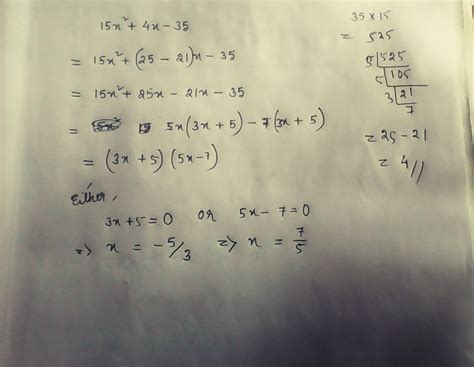 15x² + 4x - 35
= 15x² + (25 - 21)x - 35
= 15x² + 25x - 21x - 35
= 5x(3x + 5) - 7(3x + 5)
= (3x + 5) (5x - 7)
Either,
3x + 5 = 0 or 5x - 7 = 0
=> x = -5/3 => x = 7/5
35 x 15
= 525
5 | 525
5 | 105
3 | 21
7
= 25 - 21
= 4 //